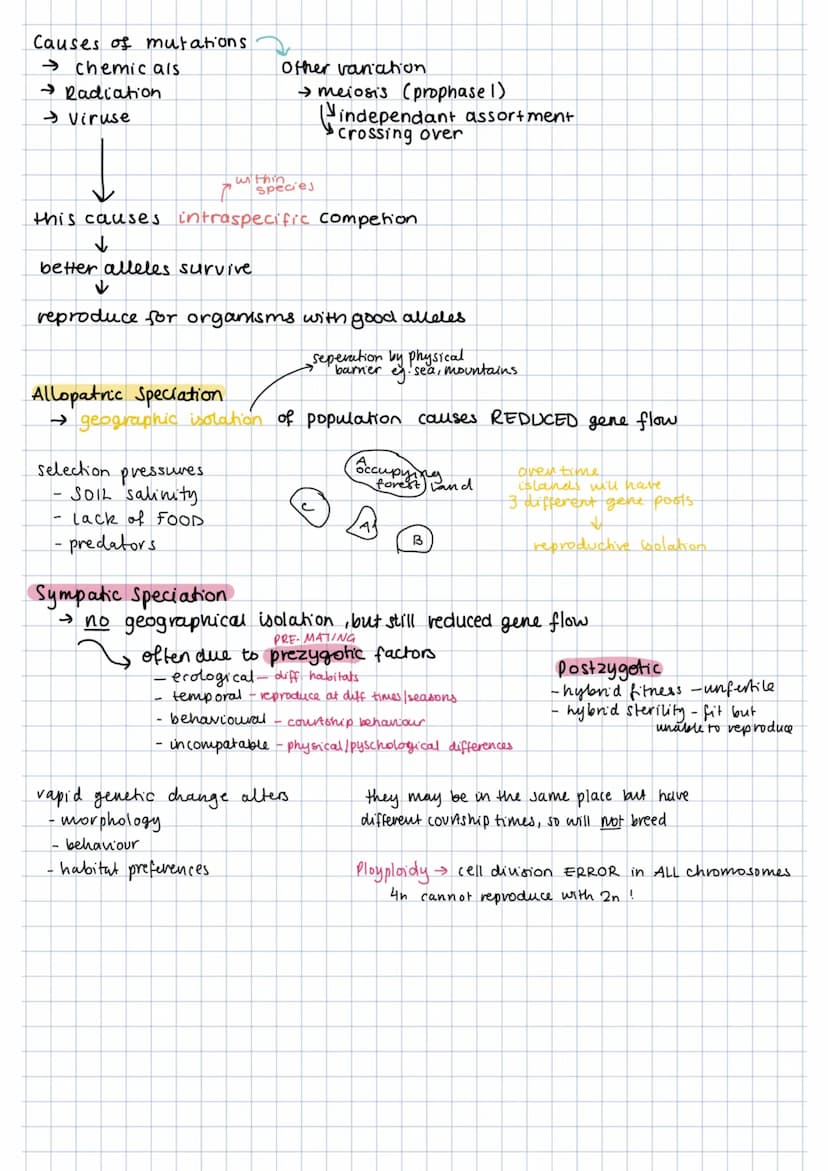 Causes of mutations
→ chemicals
→ Radiation
→ Viruse
Other variation
→ meiosis (prophase 1)
independant assortment
crossing over
within
species
this causes intraspecific competion
better alleles survive
reproduce for organisms with good alleles
seperation by physical
barrier eg. sea, mountains
Allopatric Speciation
→ geographic isolation of population causes REDUCED gene flow
selection pressures
- SOIL salinity
- Lack of FOOD
- predators
A
occupying
forest land
C
A
B
over time
islands will have
3 different gene pools
reproductive isolation
Sympatic Speciation
→ no geographical isolation, but still reduced gene flow
PRE-MATING
often due to prezygotic factors
- ecological - diff. habitats
- temporal - reproduce at diff times/seasons
- behavioural - courtship behaviour
- incompatable - physical/pyschological differences
Postzygotic
- hybrid fitness - unfertile
- hybrid sterility - fit but
unable to reproduce
rapid genetic change alters
- morphology
- behaviour
- habitat preferences
they may be in the same place but have
different courtship times, so will not breed
Ployploidy → cell division ERROR in ALL chromosomes
4n cannot reproduce with 2n !